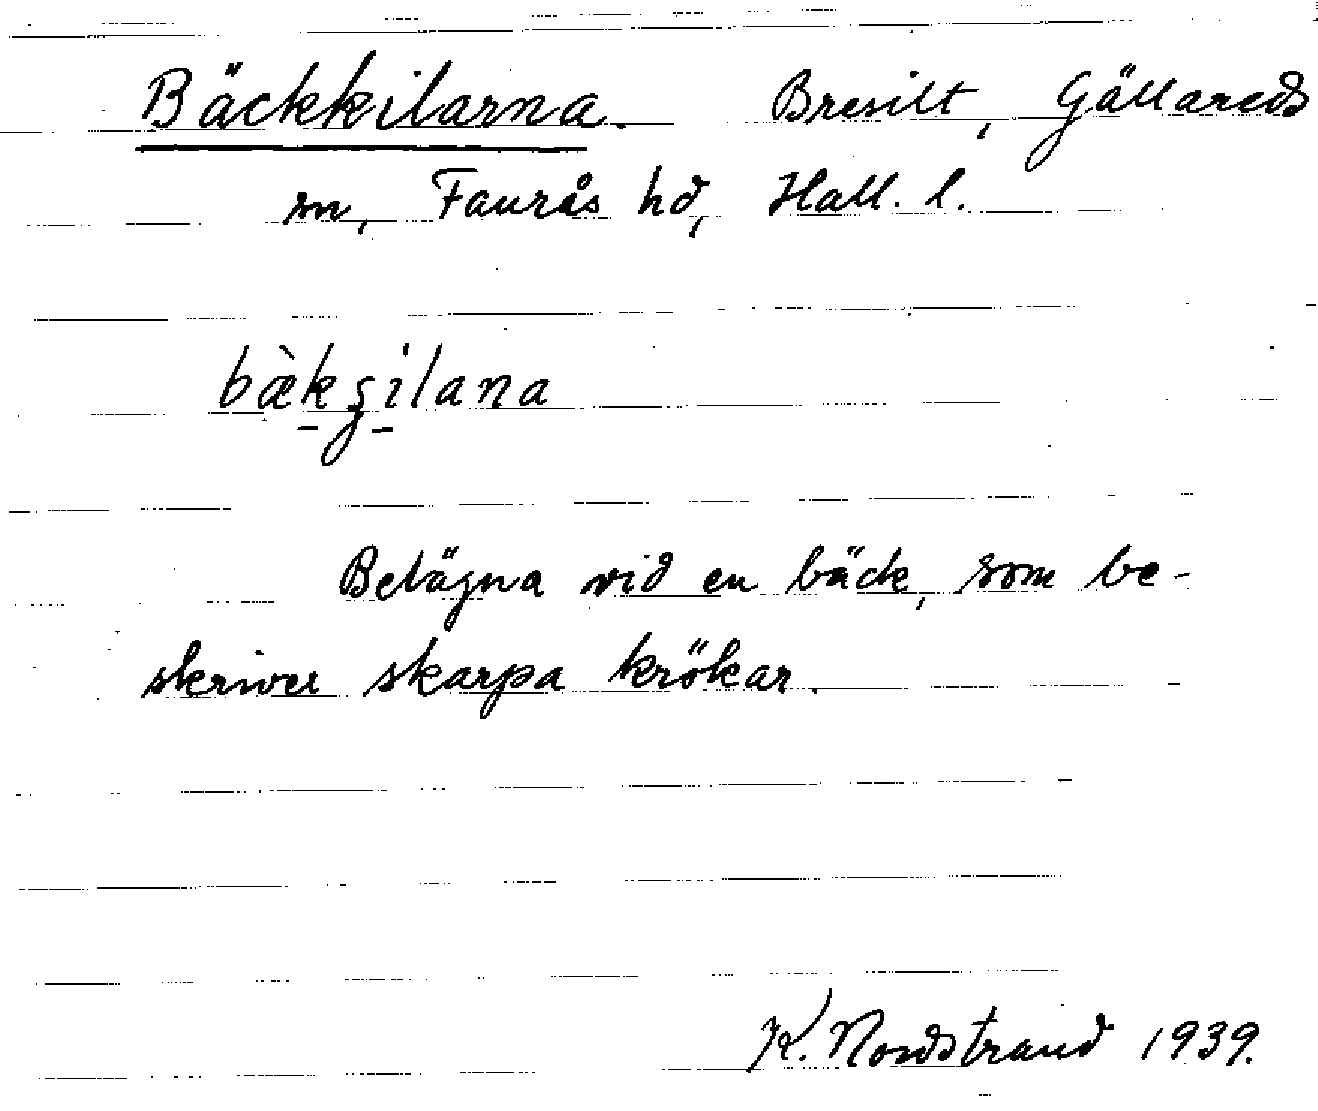 Bäckkilarna. Bresilt, Gällareds
sn, Faurås hd, Hall. l.
bæ̀kʂilana
Belägna vid en bäck, som be-
skriver skarpa krökar.
K. Nordstrand 1939.